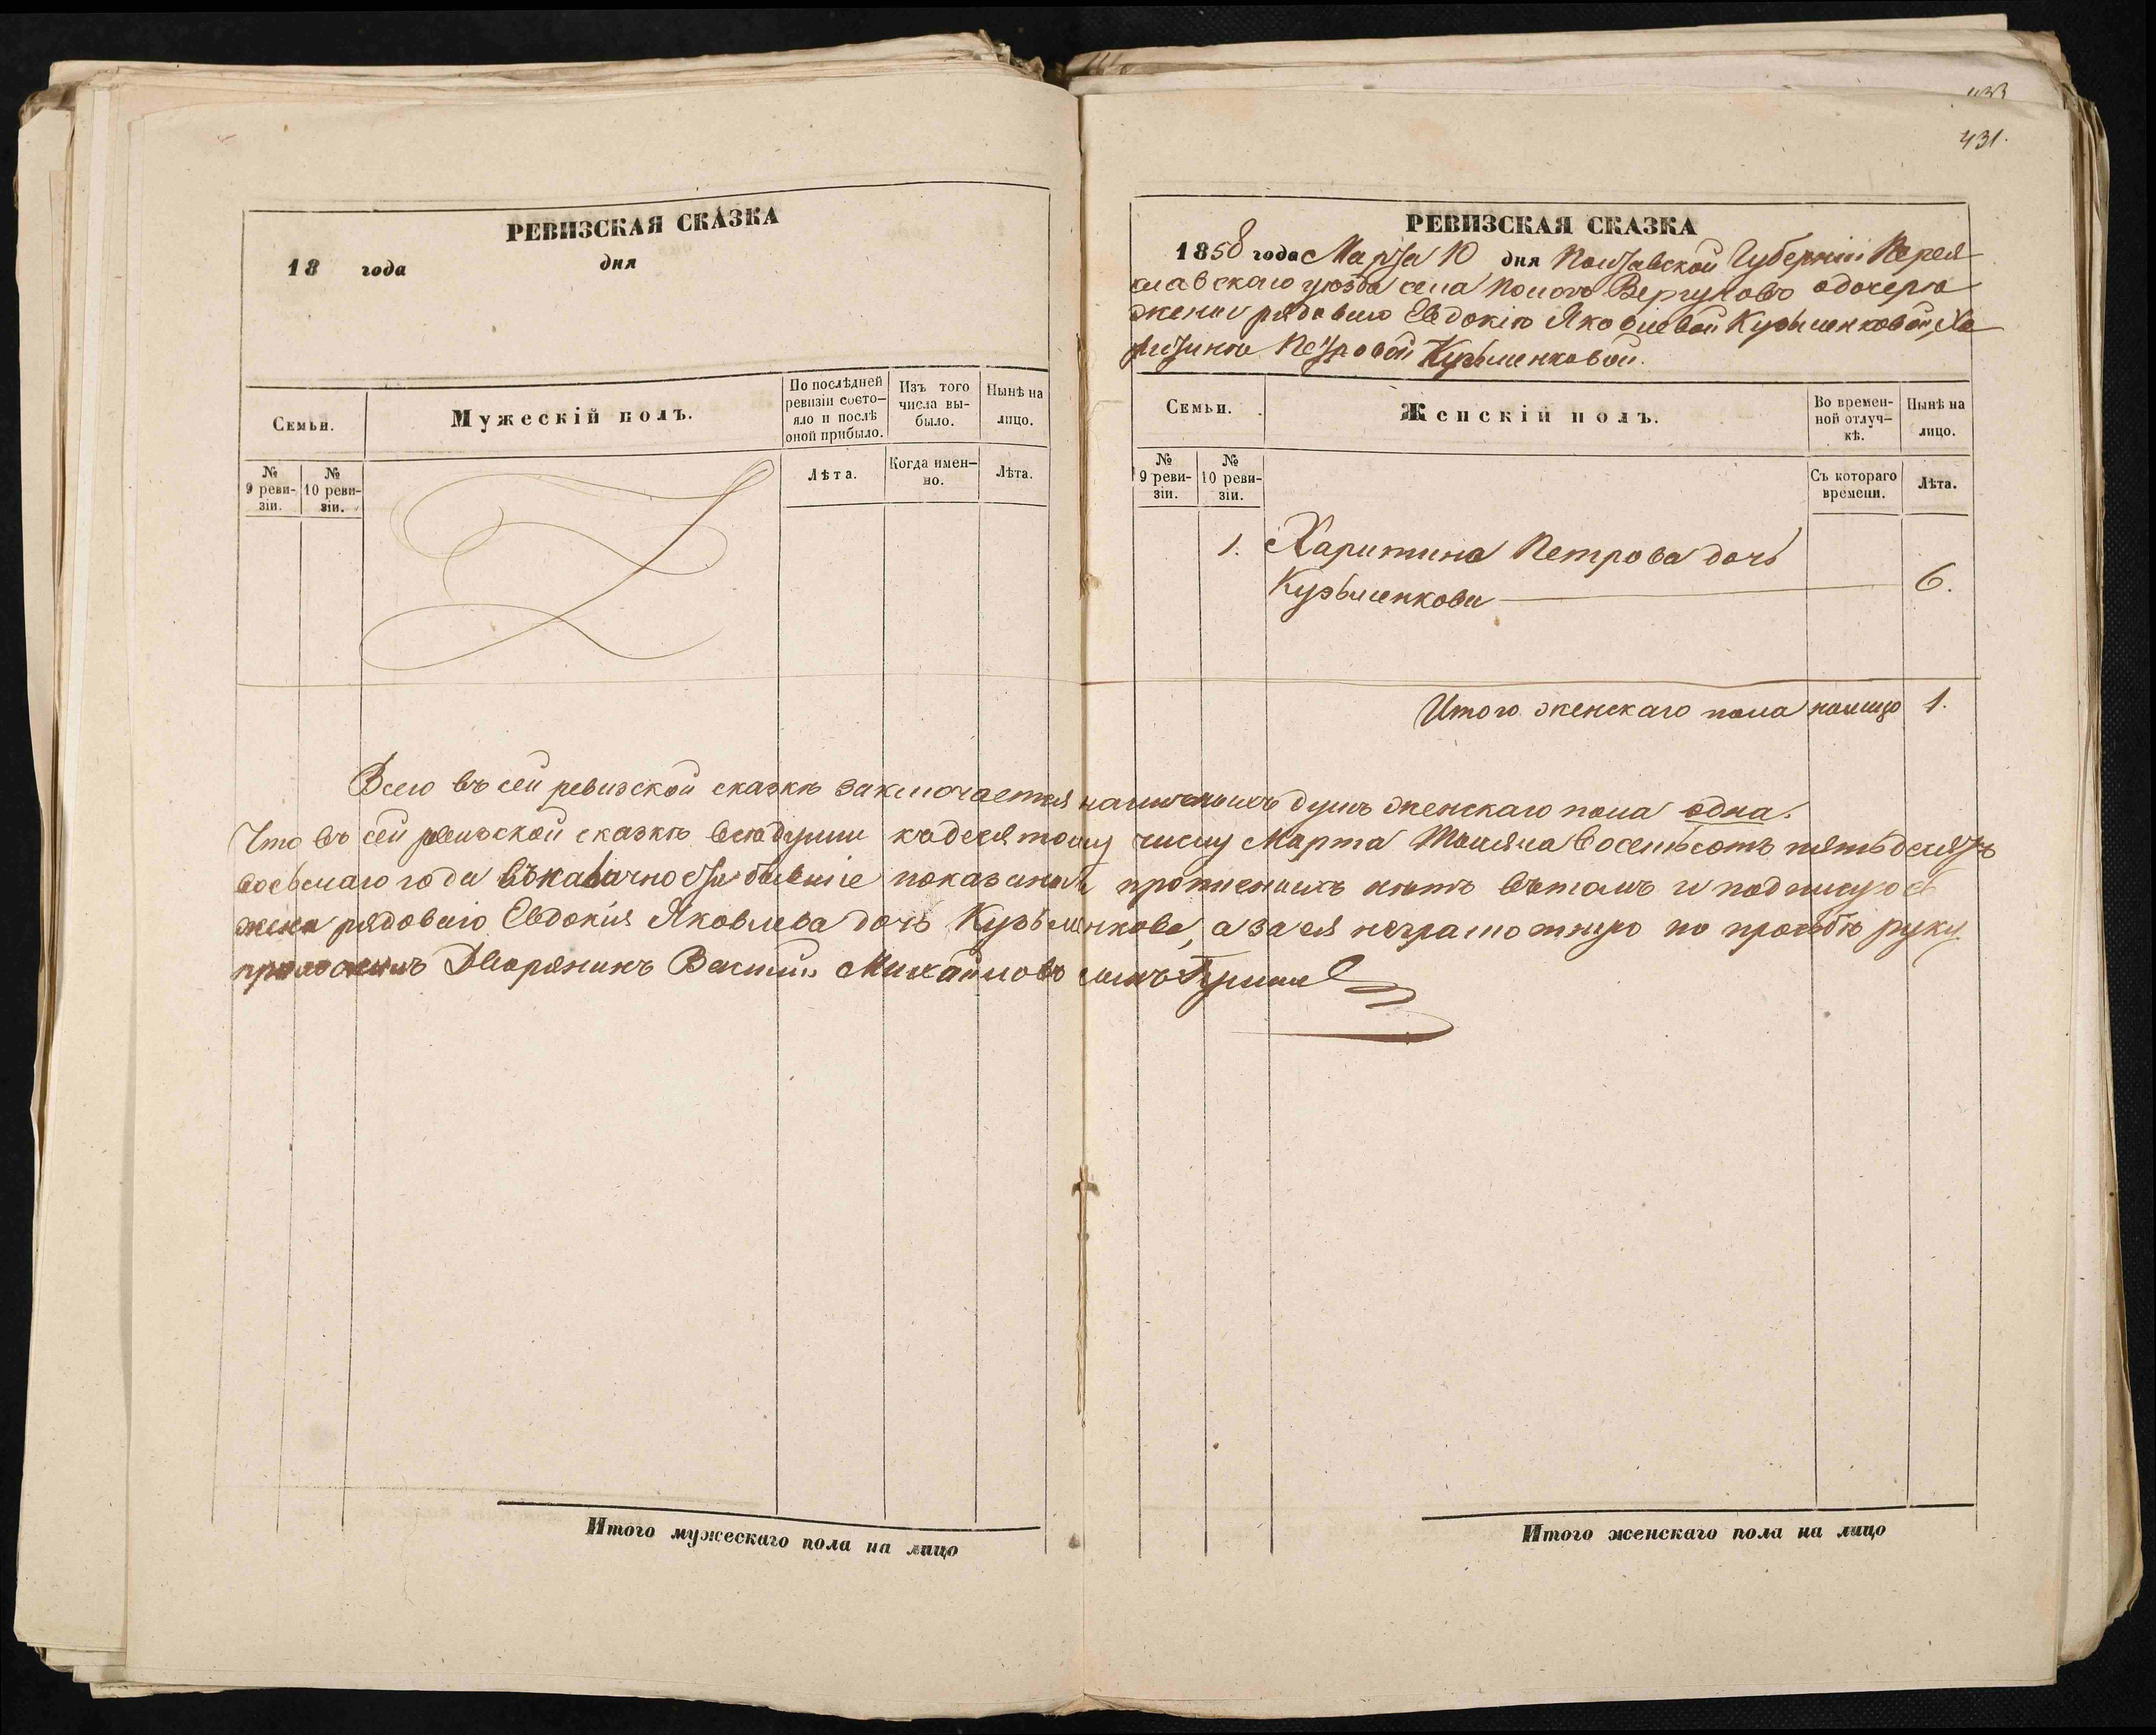 433
431.
РЕВИЗСКАЯ СКАЗКА
18 года дня
Семьи.
Мужескій полъ.
По послѣдней ревизіи состо-
яло и послѣ оной прибыло.
Изъ того числа вы-
было.
Нынѣ на лицо.
№ 9 реви-
зіи.
№ 10 реви-
зіи.
Лѣта.
Когда имен-
но.
Лѣта.
РЕВИЗСКАЯ СКАЗКА
1858 года Марта 10 дня Полтавской Губерніи Перея
славскаго уѣзда села Вергуновъ одочерѣ
жены рядоваго Евдокіи Яковлевой Кузьменковой, Ха
ритинѣ Петровой Кузьменковой.
Семьи.
Женскій полъ.
Во времен-
ной отлуч-
кѣ.
Нынѣ на лицо.
№ 9 реви-
зіи.
№ 10 реви-
зіи.
Съ котораго времени.
Лѣта.
1. Харитина Петрова дочь
Кузьменкова 6.
Итого женскаго пола налицо 1.
Всего въ сей ревизской сказкѣ заключается наличныхъ душъ женскаго пола одна.
Что въ сей ревизской сказкѣ всѣ души кодесятому числу Марта Тысяча восемьсотъ пятьдесятъ
восьмаго года въ наличности бывшіе показаны, и прописныхъ нѣтъ вътомъ и подписуюсь
жена рядоваго Евдокія Яковлева дочь Кузьменкова, а за ея неграмотную по просьбѣ руку
приложилъ Дворянинъ Василій Михайловъ сынъ
Итого мужескаго пола на лицо
Итого женскаго пола на лицо